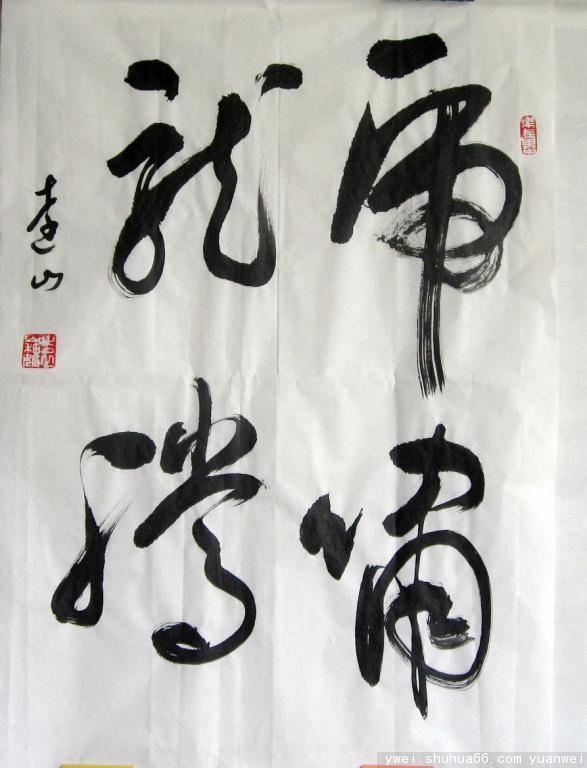 虎嘯
龍騰
遠山
ywei.shuhua66.com yuanwei